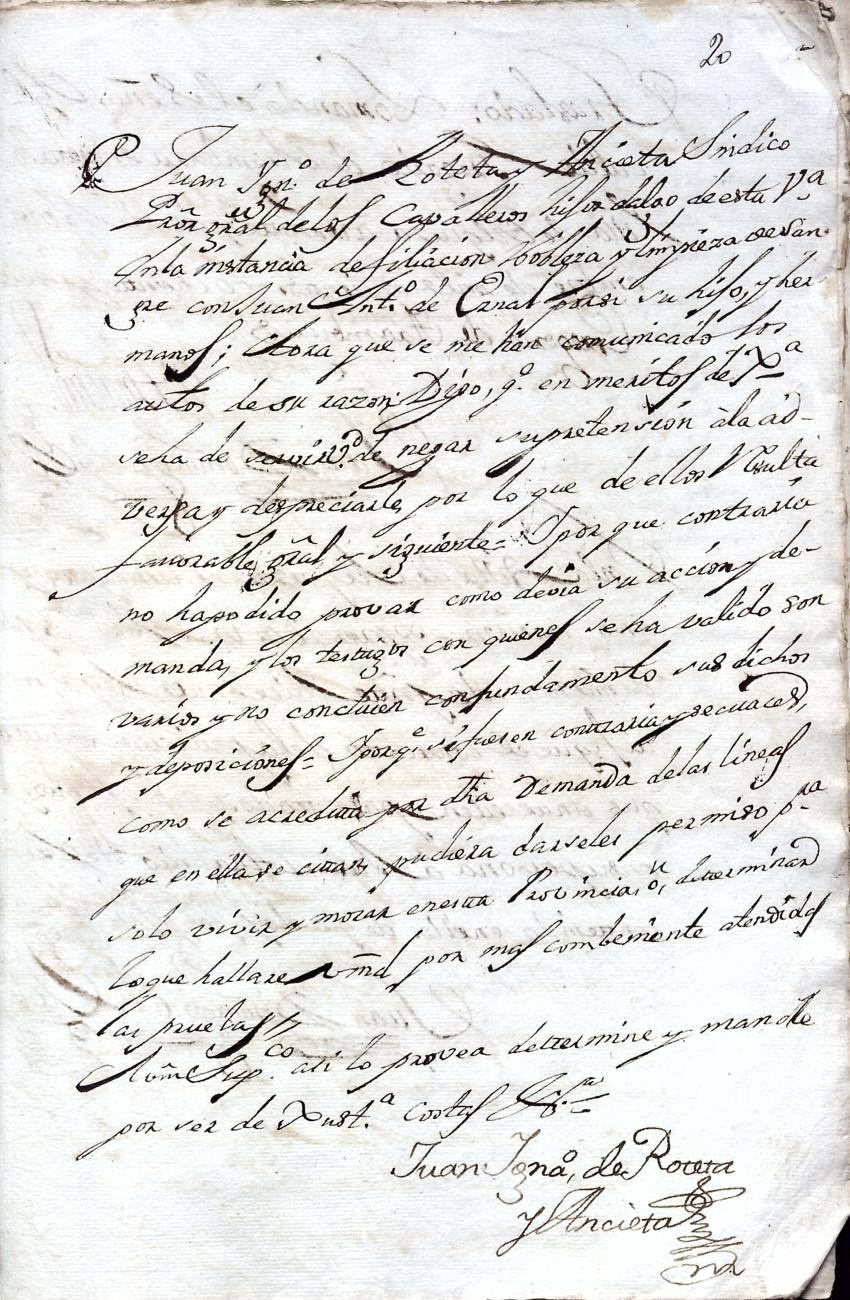 20
Juan Ygn.º de Roteta y Ancieta Sindico
Prõr gñral de los Cavalleros hijos dalgo de esta Vª
en la instancia de filiacion Nobleza y limpieza de San
gre con Juan Ant.º de Ernal porsi su hijo, y her
manos; Aora que se me hán comunicado los
autos de su razon Digo, q.º en meritos de Xª
se ha de servir V.d de negar su pretensión à la ad-
versa y despreciarle, por lo que de ellos Resulta
favorable gñral, y siguiente = Ypor que contraria
no hapodido provar como devia su acción y de-
manda, y los testigos con quienes se ha valido son
varios y no concluíen confundamento sus dichos
y deposiciones = Yporq.e si fuesen contraria y secuaces,
como se acredita por dha Demanda delas lineas
que en ella se citan, pudiera darseles permiso pra
solo vivir y morar enesta Provincia, ô, determinar
loque hallare vmd por mas combeniente atendidas
las pruebas //
Avm Sup.co asi lo provea determine y mande
por ser de Xust.a costas &.a
Juan Ignaº, de Roteta
y Ancieta